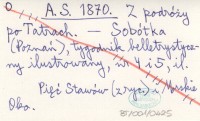 A.S. 1870. Z podróży
po Tatrach. — Sobótka
(Poznań), tygodnik belletrystycz-
ny ilustrowany, nr 4 i 5, il.
Pięć Stawów (z ryc.) i Morskie
Oko.